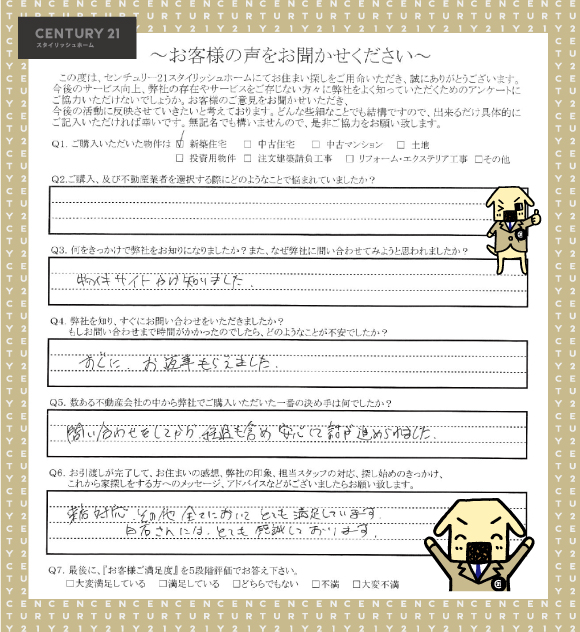 CENTURY 21
スタイリッシュホーム
～お客様の声をお聞かせください～
この度は、センチュリー21スタイリッシュホームにてお住まい探しをご用命いただき、誠にありがとうございます。
今後のサービス向上、弊社の存在やサービスをご存じない方々に弊社をよく知っていただくためのアンケートに
ご協力いただけないでしょうか。お客様のご意見をお聞かせいただき、
今後の活動に反映させていきたいと考えております。どんな些細なことでも結構ですので、出来るだけ具体的に
ご記入いただければ幸いです。無記名でも構いませんので、是非ご協力をお願い致します。
Q1. ご購入いただいた物件は ☑ 新築住宅 □ 中古住宅 □ 中古マンション □ 土地
□ 投資用物件 □ 注文建築請負工事 □ リフォーム・エクステリア工事 □その他
Q2.ご購入、及び不動産業者を選択する際にどのようなことで悩まれていましたか？
Q3. 何をきっかけで弊社をお知りになりましたか？また、なぜ弊社に問い合わせてみようと思われましたか？
物件サイトから知りました。
Q4. 弊社を知り、すぐにお問い合わせをいただきましたか？
もしお問い合わせまで時間がかかったのでしたら、どのようなことが不安でしたか？
すぐに お返事もらえました。
Q5. 数ある不動産会社の中から弊社でご購入いただいた一番の決め手は何でしたか？
問い合わせをしてから、経過も含め 安心して話が進められました。
Q6. お引渡しが完了して、お住まいの感想、弊社の印象、担当スタッフの対応、探し始めのきっかけ、
これから家探しをする方へのメッセージ、アドバイスなどがございましたらお願い致します。
対応 その他 全てにおいて とても 満足しています。
白石さんには、とても 感謝しております。
Q7. 最後に、『お客様ご満足度』を5段階評価でお答え下さい。
□大変満足している □満足している □どちらでもない □不満 □大変不満